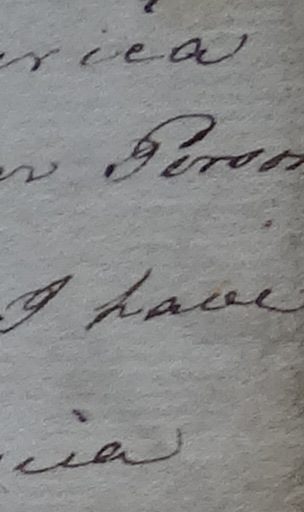 rica
r Person
I have
nia